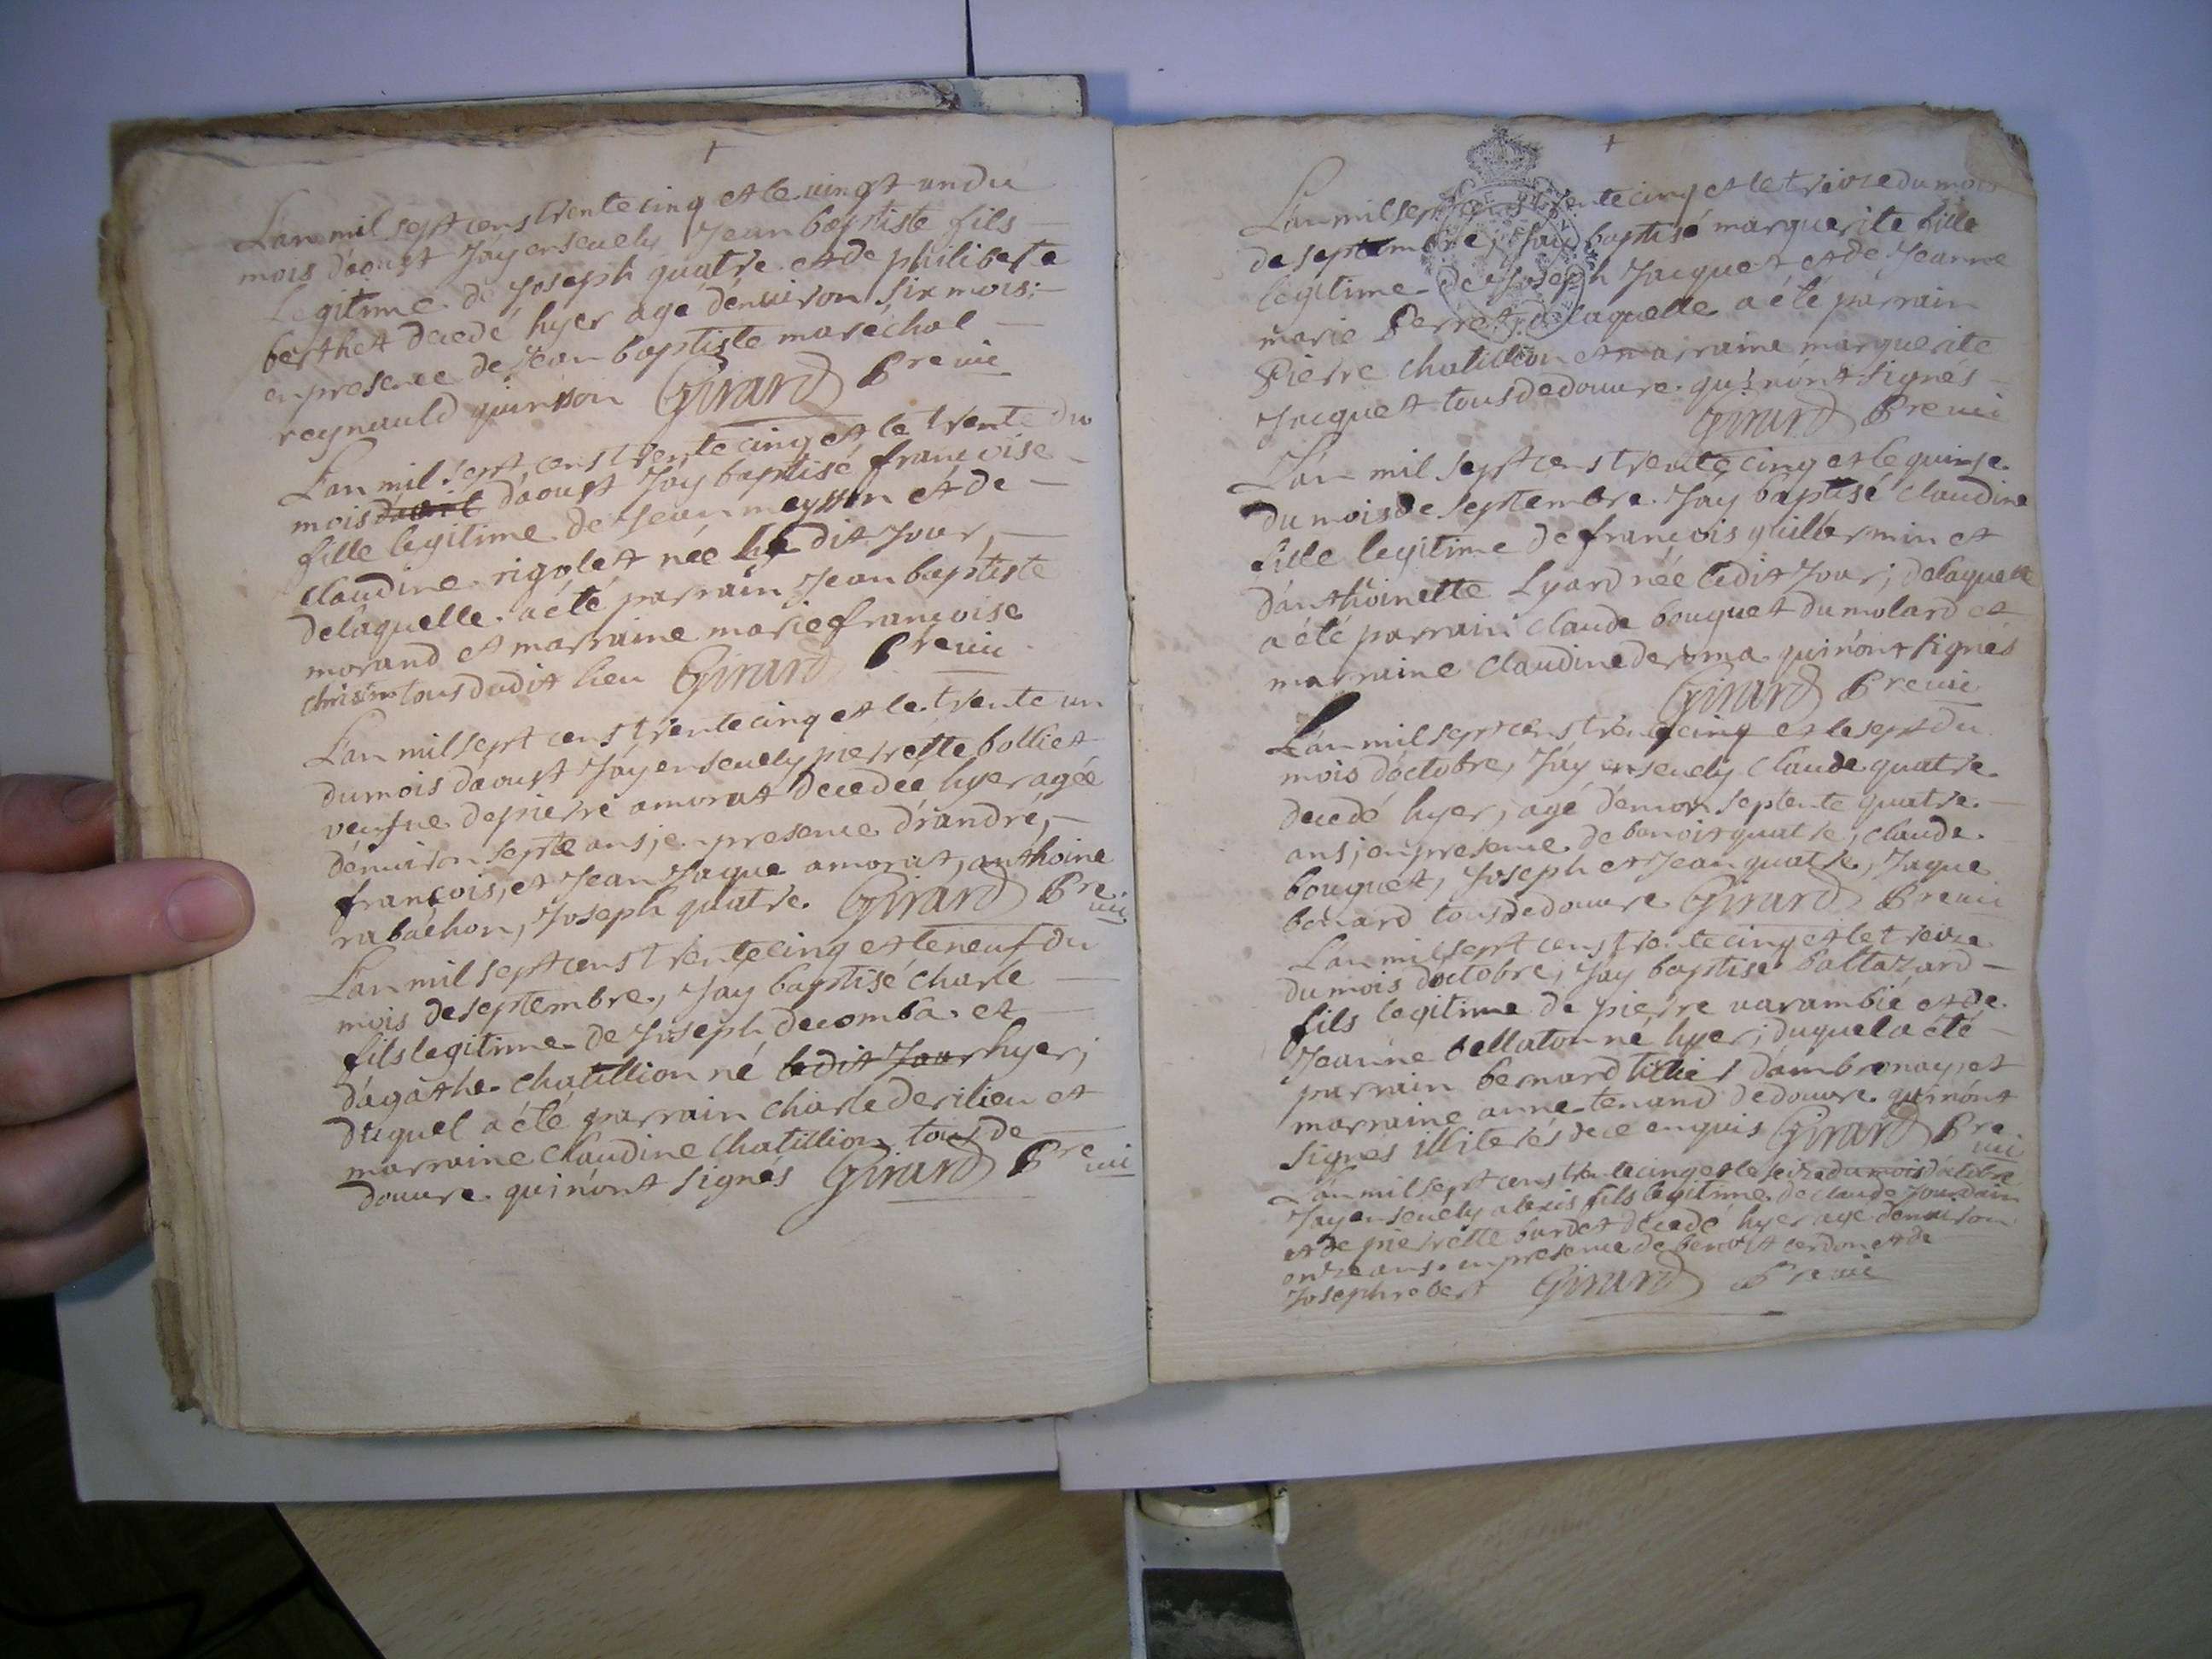 L'an mil sept cens trente cinq et le vingt un du
mois d'aoust J'ay enseuely Jean baptiste fils
Legitime de Joseph quatre et de philiberte
berthet decedé hyer agé d'enuiron six mois;
en presence de Jean baptiste maréchal
reynauld quinson Girard Pre uic
L'an mil sept cens trente cinq et le trente du
mois d'avril d'aoust J'ay baptisé françoise
fille legitime de Jean meyssin et de
claudine rigolet née le dit Jour,
delaquelle a été parrain Jean baptiste
morand et marraine marie françoise
tous dudit lieu Girard Pre uic
L'an mil sept cens trente cinq et le trente un
du mois d'aoust J'ay enseuely pierrette bolliet
veufue de pierre amorat decedée hyer agée
d'enuiron septe ans, en presence d'andré,
françois, et Jean Jaque amorat, anthoine
rabachon, Joseph quatre. Girard Pre uic
L'an mil sept cens trente cinq et le neuf du
mois de septembre, J'ay baptisé charle
fils legitime de Joseph decomba et
d'agathe chatillion né le dit Jour hyer;
duquel a été parrain charle derilieu et
marraine claudine chatillion tous de
douure qui n'ont signés Girard Pre uic
L'an mil sept cens trente cinq et le treize du mois
de septembre, J'ay baptisé marguerite fille
legitime de Joseph Jacquet et de Jeanne
marie Perret, delaquelle a été parrain
Pierre chatillion et marraine marguerite
Jacquet tous de douure qui n'ont signés
Girard Pre uic
L'an mil sept cens trente cinq et le quinse
du mois de septembre J'ay baptisé claudine
fille legitime de françois guillermin et
d'anthoinette Lyard née ledit Jour; delaquelle
a été parrain claude bouquet du molard et
marraine claudine deroma qui n'ont signés
Girard Pre uic
L'an mil sept cens trente cinq et le sept du
mois d'octobre, J'ay enseuely claude quatre
decedé hyer, agé d'enuiron septente quatre
ans; en presence de benoit quatre, claude
bouquet, Joseph et Jean quatre, Jaque
bonard tous de douure Girard Pre uic
L'an mil sept cens trente cinq et le treize
du mois d'octobre, J'ay baptisé baltazard
fils legitime de pierre varambié et de
Jeanne bellaton né hyer; duquel a été
parrain bernard tillier d'ambronay, et
marraine anne tenand de douure qui n'ont
signés illiterés de ce enquis Girard Pre uic
L'an mil sept cens trente cinq et le seize du mois d'octobre
J'ay enseuely alexis fils legitime de claude Jourdain
et de pierrette burdet decedé hyer agé d'enuiron
onze ans en presence de benoit cerdon et de
Joseph robert Girard Pre uic